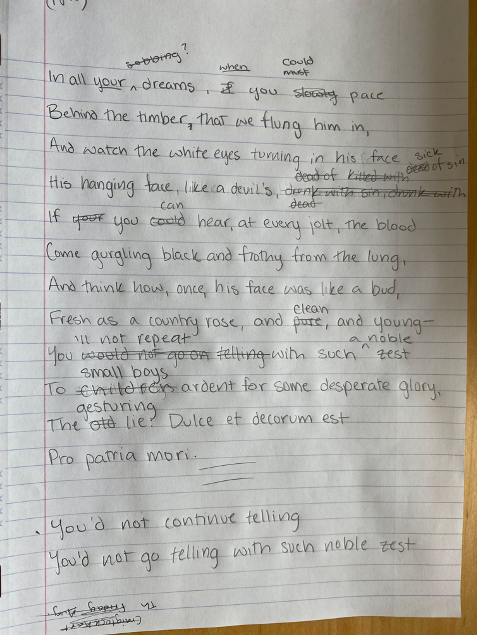 sobbing?
when could
must
In all your ^ dreams, if you slowly pace
Behind the timber, that we flung him in,
And watch the white eyes turning in his face
sick
dead of killed with dead of sin
His hanging face, like a devil's, drunk with sin, drunk with
can dead
If your you could hear, at every jolt, the blood
Come gurgling black and frothy from the lung,
And think how, once, his face was like a bud,
clean
Fresh as a country rose, and pure, and young–
'll not repeat a noble
You would not go on telling with such ^ zest
small boys
To children ardent for some desperate glory,
gesturing
The old lie: Dulce et decorum est
Pro patria mori.
You'd not continue telling
You'd not go telling with such noble zest